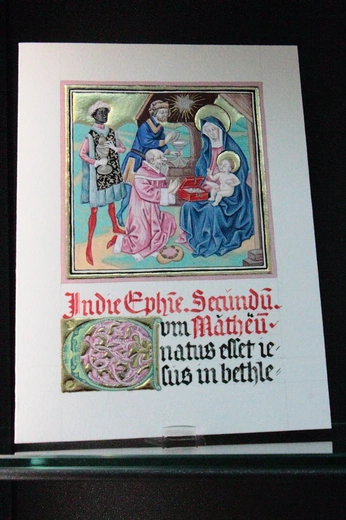 In die Ephīe. Secundū.
Cvm Mǎthēū.
natus esset ie-
sus in bethle-